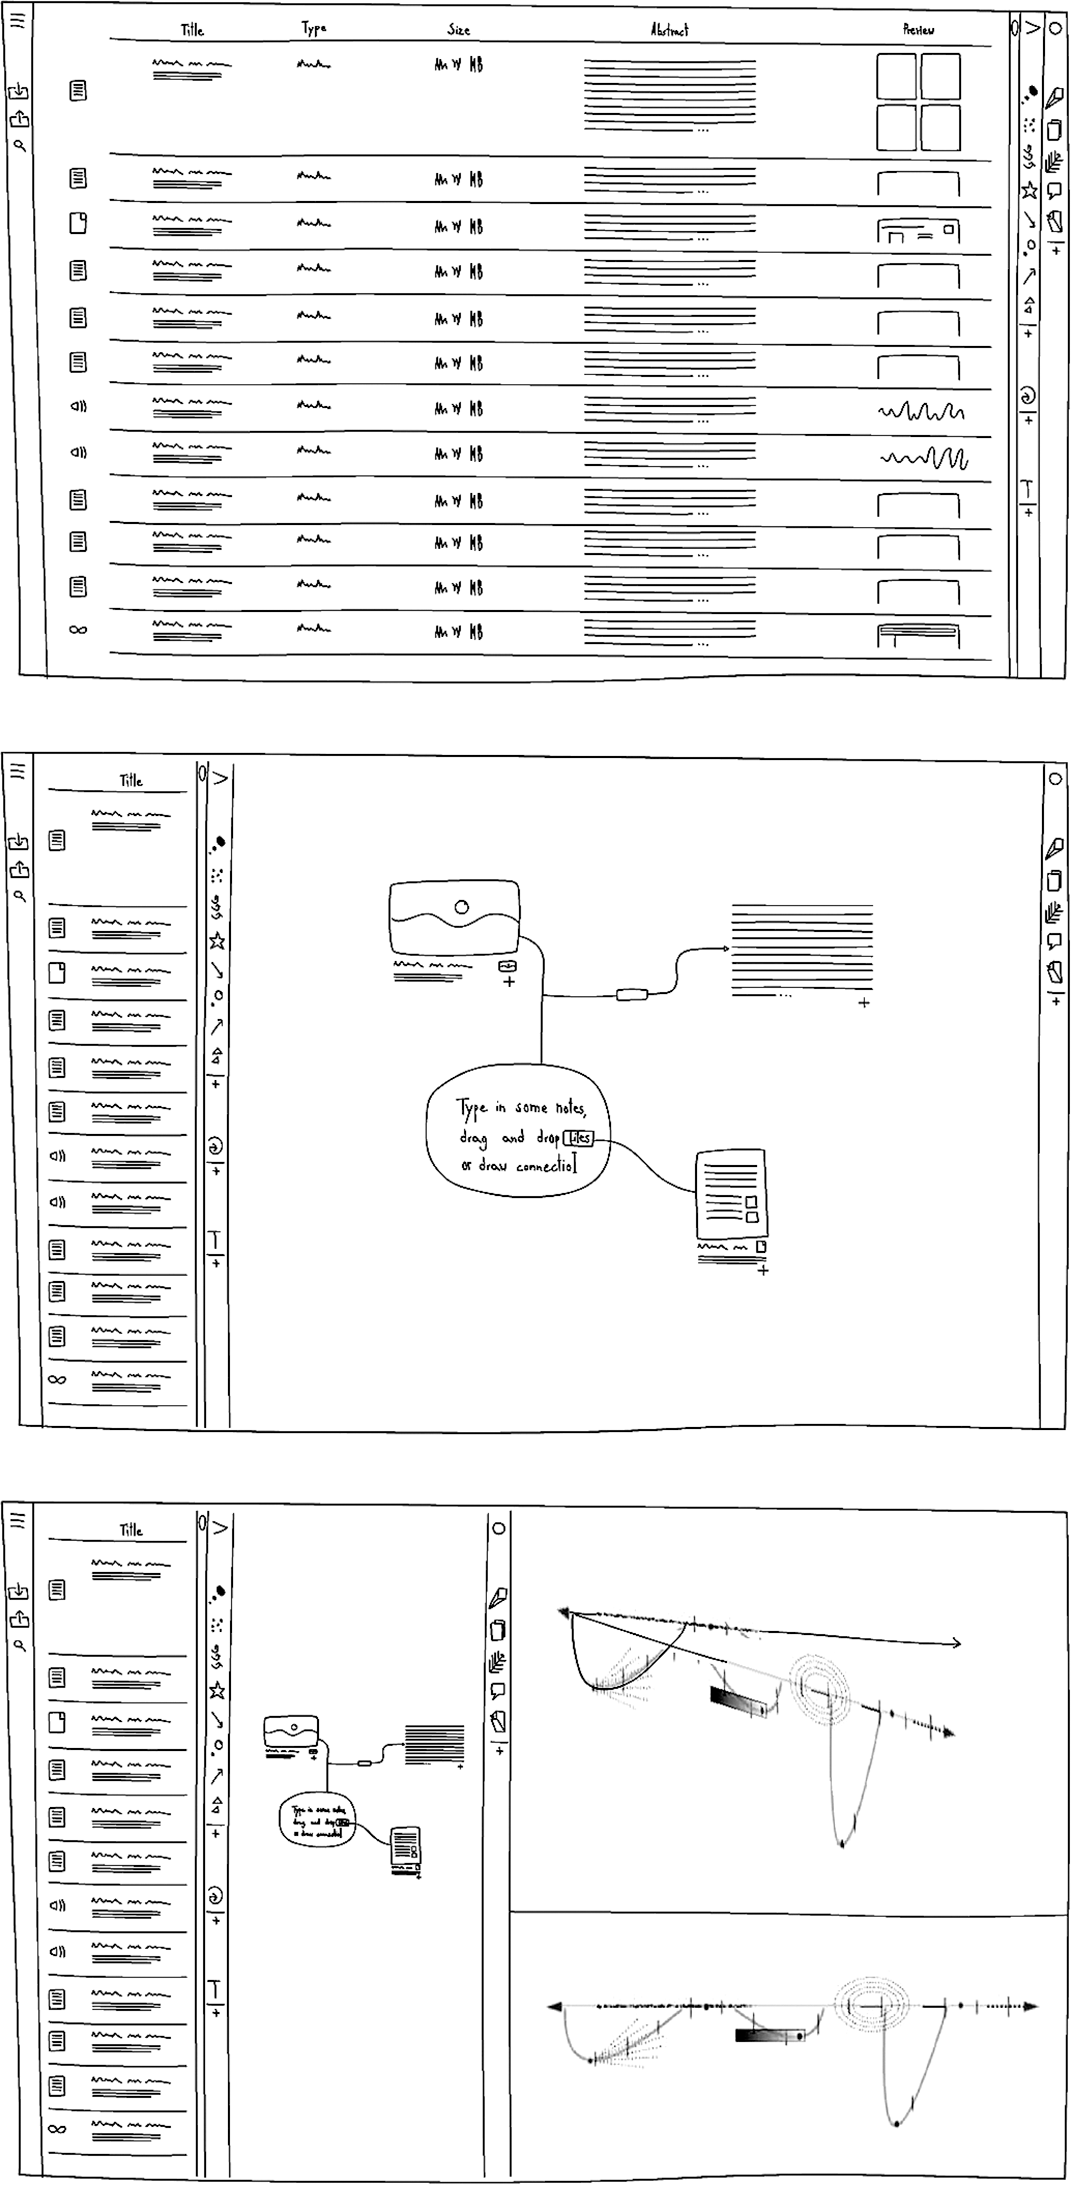 Title Type Size Abstract Preview
MB
MB
MB
MB
MB
MB
MB
MB
MB
MB
MB
MB
Title
Type in some notes,
drag and drop files
or draw connectio
Title
Type in some notes,
drag and drop files
or draw connectio